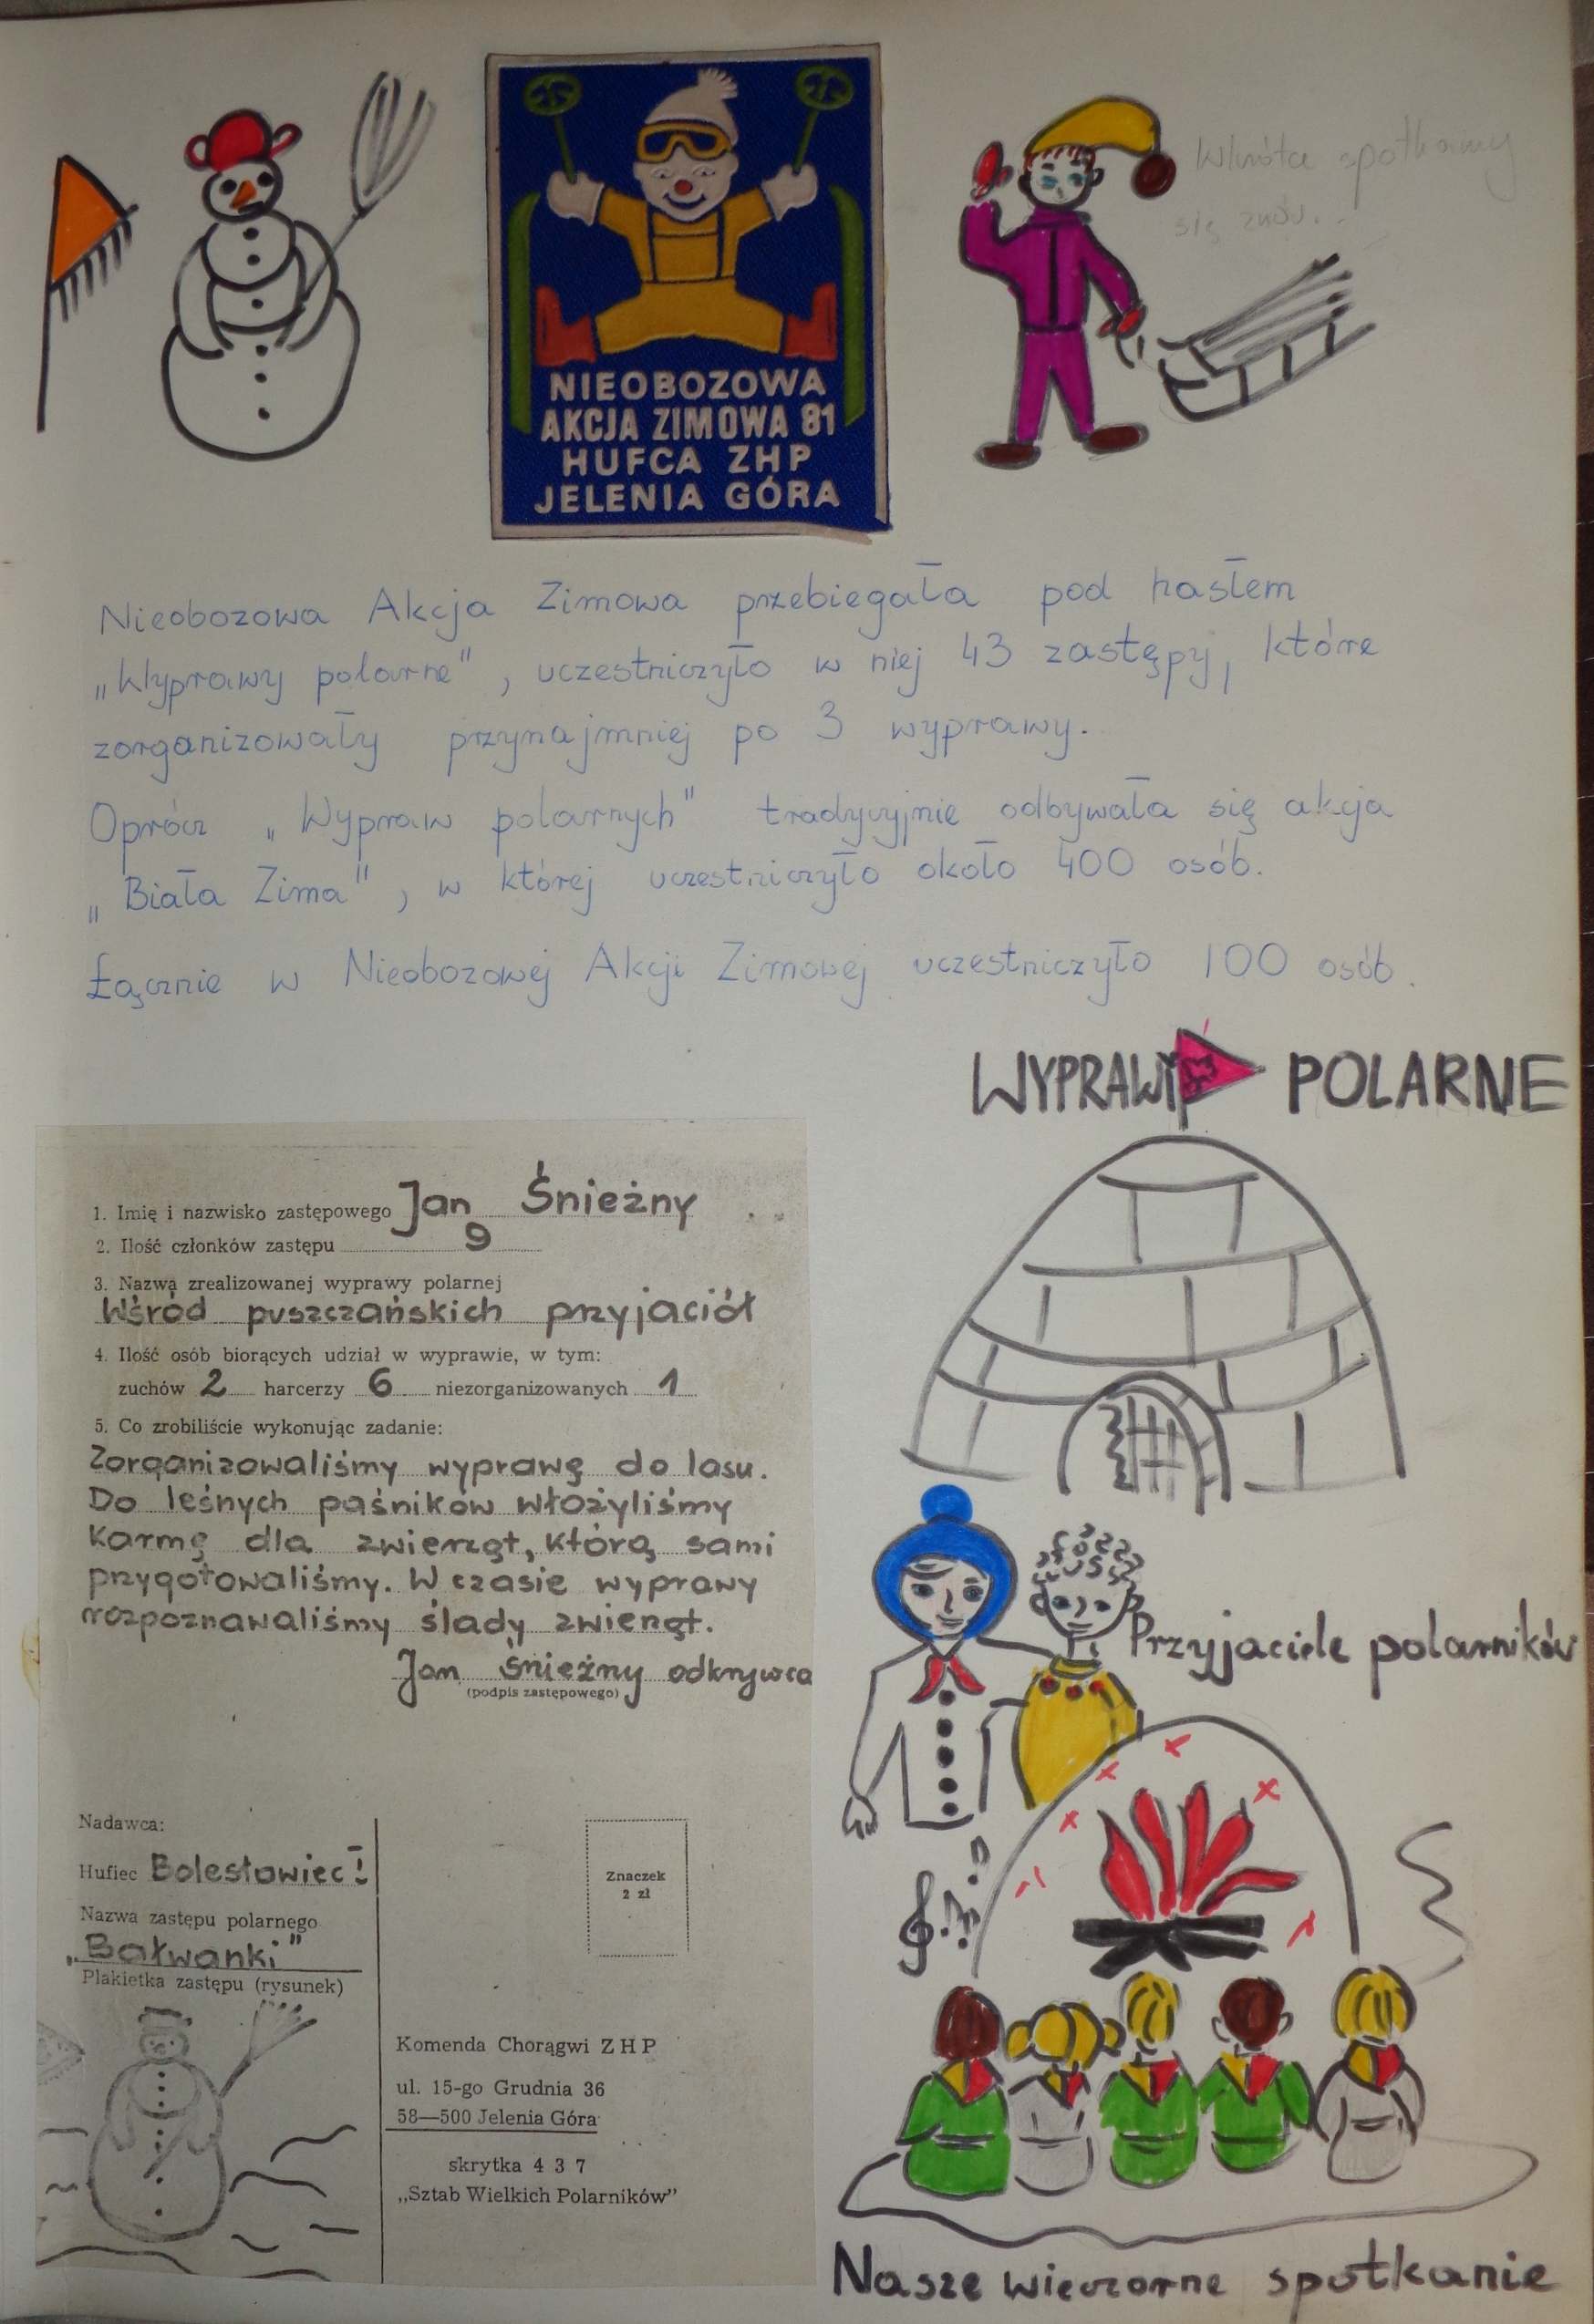 Wkrótce spotkamy
się znów...
NIEOBOZOWA
AKCJA ZIMOWA 81
HUFCA ZHP
JELENIA GÓRA
Nieobozowa Akcja Zimowa przebiegała pod hasłem
„Wyprawy polarne", uczestniczyło w niej 43 zastępy, które
zorganizowały przynajmniej po 3 wyprawy.
Oprócz „Wypraw polarnych" tradycyjnie odbywała się akcja
„Biała Zima", w której uczestniczyło około 400 osób.
Łącznie w Nieobozowej Akcji Zimowej uczestniczyło 100 osób.
WYPRAWY POLARNE
1. Imię i nazwisko zastępowego Jan Śnieżny
2. Ilość członków zastępu 9
3. Nazwa zrealizowanej wyprawy polarnej
Wśród puszczańskich przyjaciół
4. Ilość osób biorących udział w wyprawie, w tym:
zuchów 2 harcerzy 6 niezorganizowanych 1
5. Co zrobiliście wykonując zadanie:
Zorganizowaliśmy wyprawę do lasu.
Do leśnych paśników włożyliśmy
karmę dla zwierząt, którą sami
przygotowaliśmy. W czasie wyprawy
rozpoznawaliśmy ślady zwierząt.
Jan Śnieżny odkrywca
(podpis zastępowego)
Przyjaciele polarników
Nadawca:
Hufiec Bolesławiec
Nazwa zastępu polarnego
„Bałwanki"
Plakietka zastępu (rysunek)
Znaczek
2 zł
Komenda Chorągwi ZHP
ul. 15-go Grudnia 36
58—500 Jelenia Góra
skrytka 4 3 7
„Sztab Wielkich Polarników”
Nasze wieczorne spotkanie